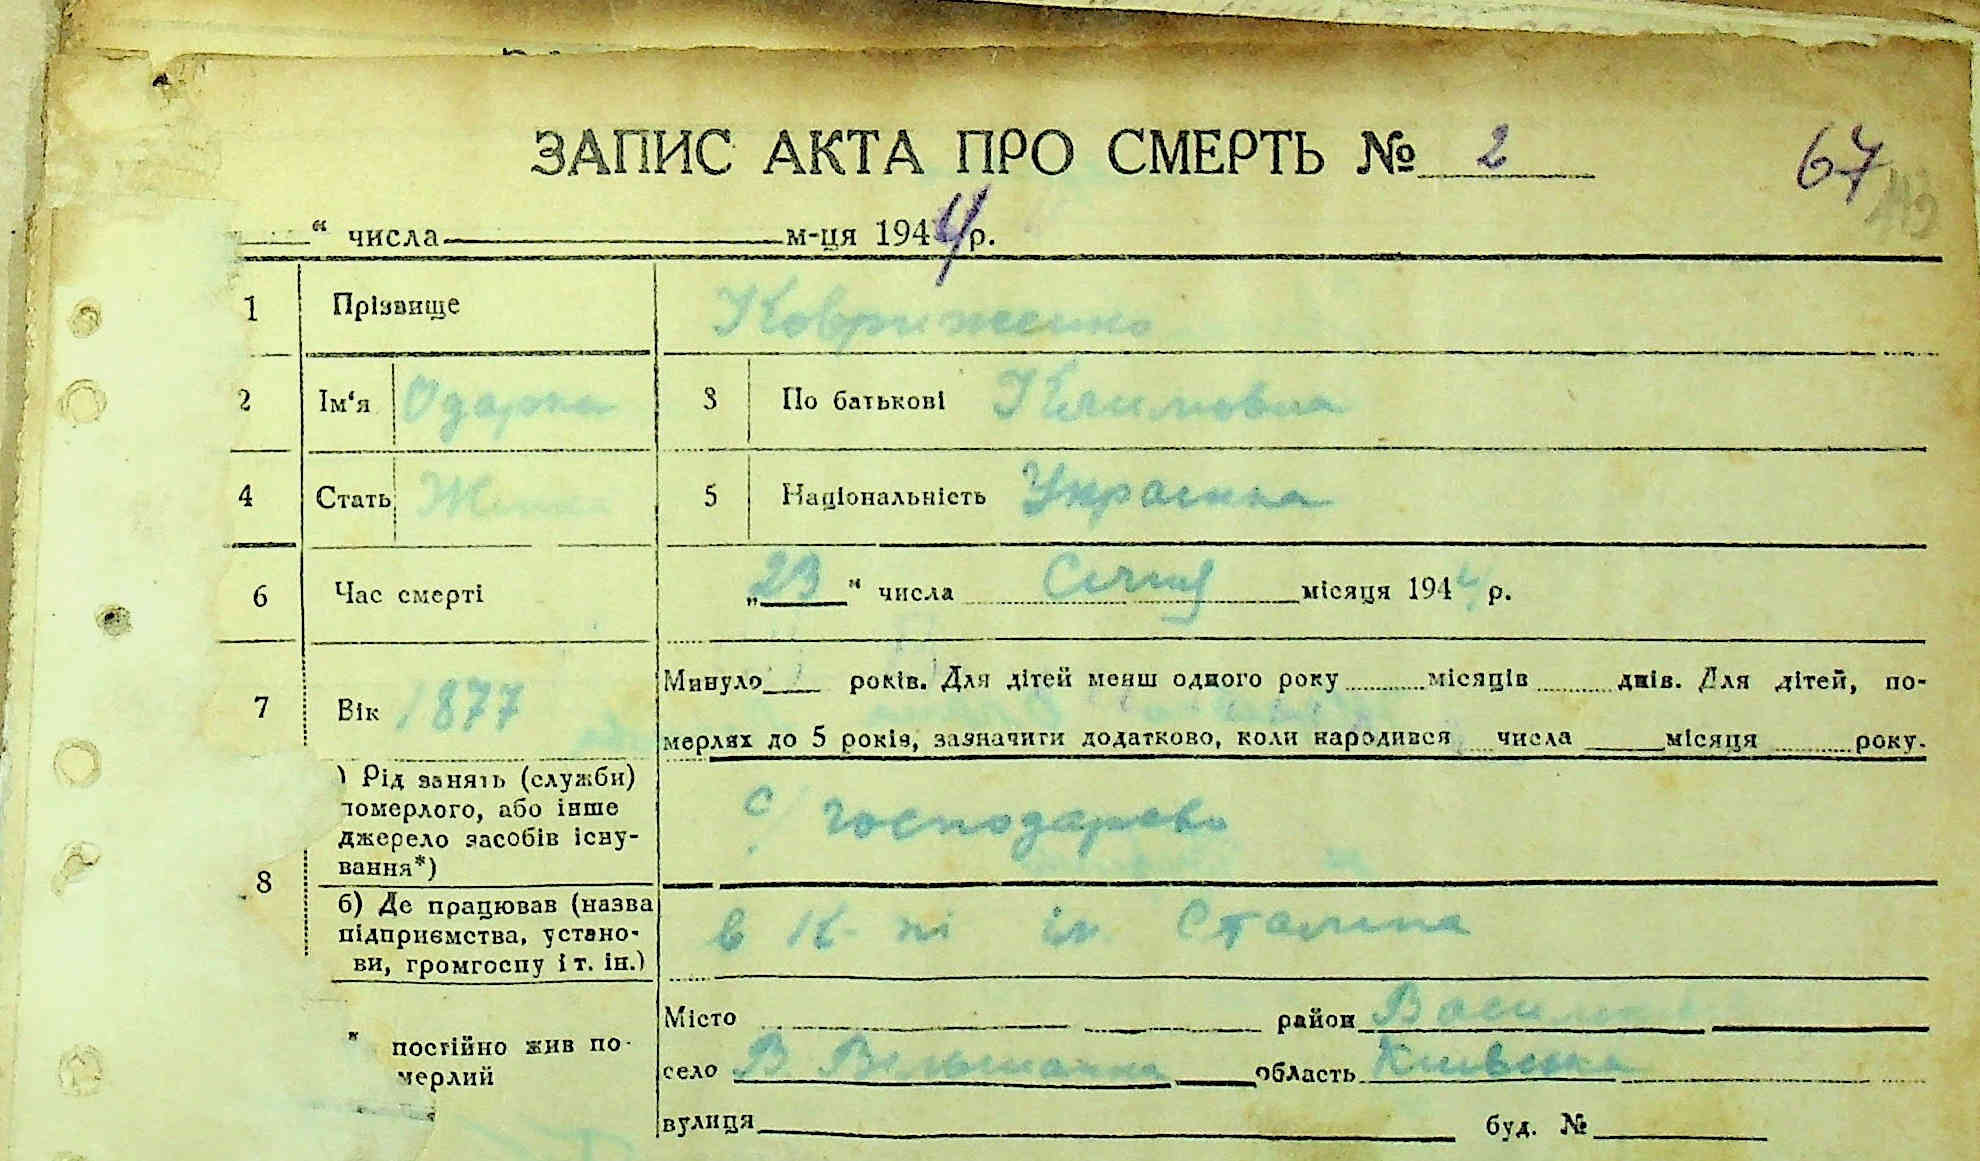 ЗАПИС АКТА ПРО СМЕРТЬ № 2
67
“ числа м-ця 1944 р.
1 ПрізвищеКовриженко
2 Ім‘я Одарка 3 По батькові Климовна
4 Стать Жінка 5 Національність Украинка
6 Час смерті „23“ числа Січня місяця 1944 р.
7 Вік 1877 Минуло років. Для дітей менш одного року місяців днів. Для дітей, по-
мерлих до 5 років, зазначити додатково, коли народився числа місяця року.
8 ) Рід занять (служби)
померлого, або інше
джерело засобів існу-
вання*)
с/господарство
б) Де працював (назва
підприємства, устано-
ви, громгоспу і т. ін.)
в К-пі ім. Сталина
постійно жив по-
мерлий
Місто район
село В. Вільшанка область Київська
вулиця буд. №